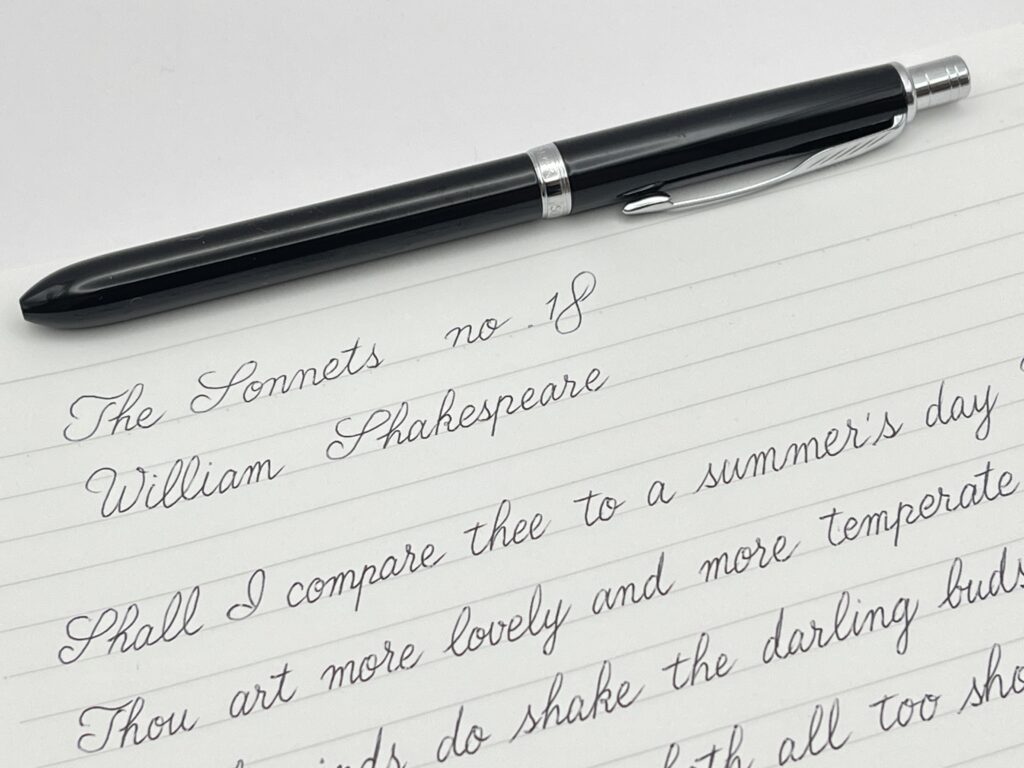 The Sonnets no. 18
William Shakespeare
Shall I compare thee to a summer's day
Thou art more lovely and more temperate
do shake the darling buds
all too